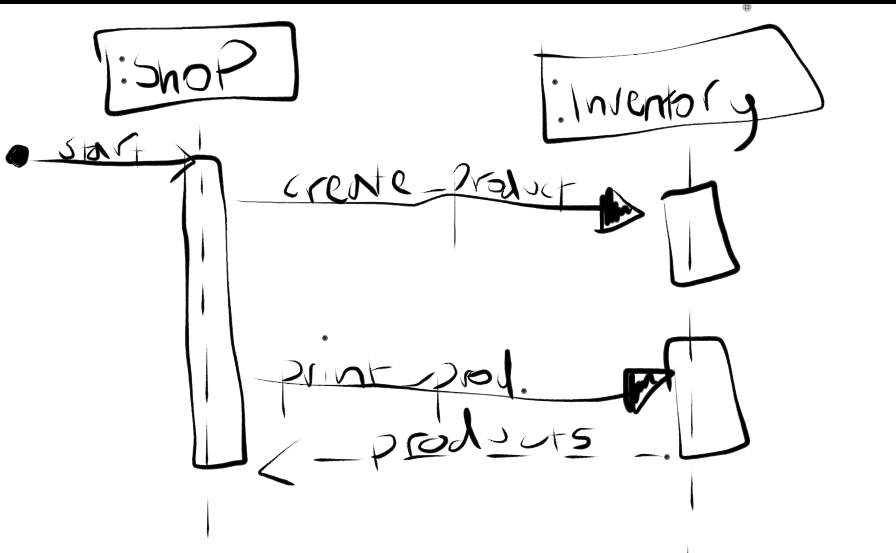 :Shop
:Inventory
start
create_product
print_prod.
products